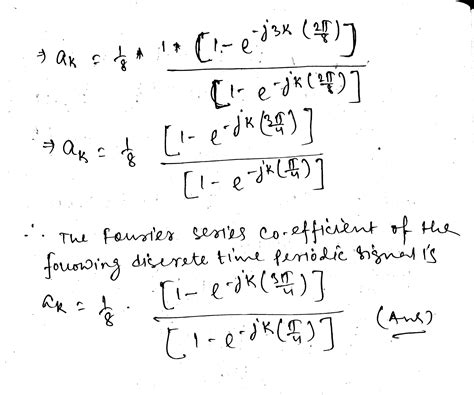 ⇒ aₖ = 1/8 * 1 * [1 - e^{-j3k(2π/8)}] / [1 - e^{-jk(2π/8)}]
⇒ aₖ = 1/8 [1 - e^{-jk(3π/4)}] / [1 - e^{-jk(π/4)}]
∴ The fourier series co-efficient of the
following discrete time periodic signal is
aₖ = 1/8 · [1 - e^{-jk(3π/4)}] / [1 - e^{-jk(π/4)}] (Ans)